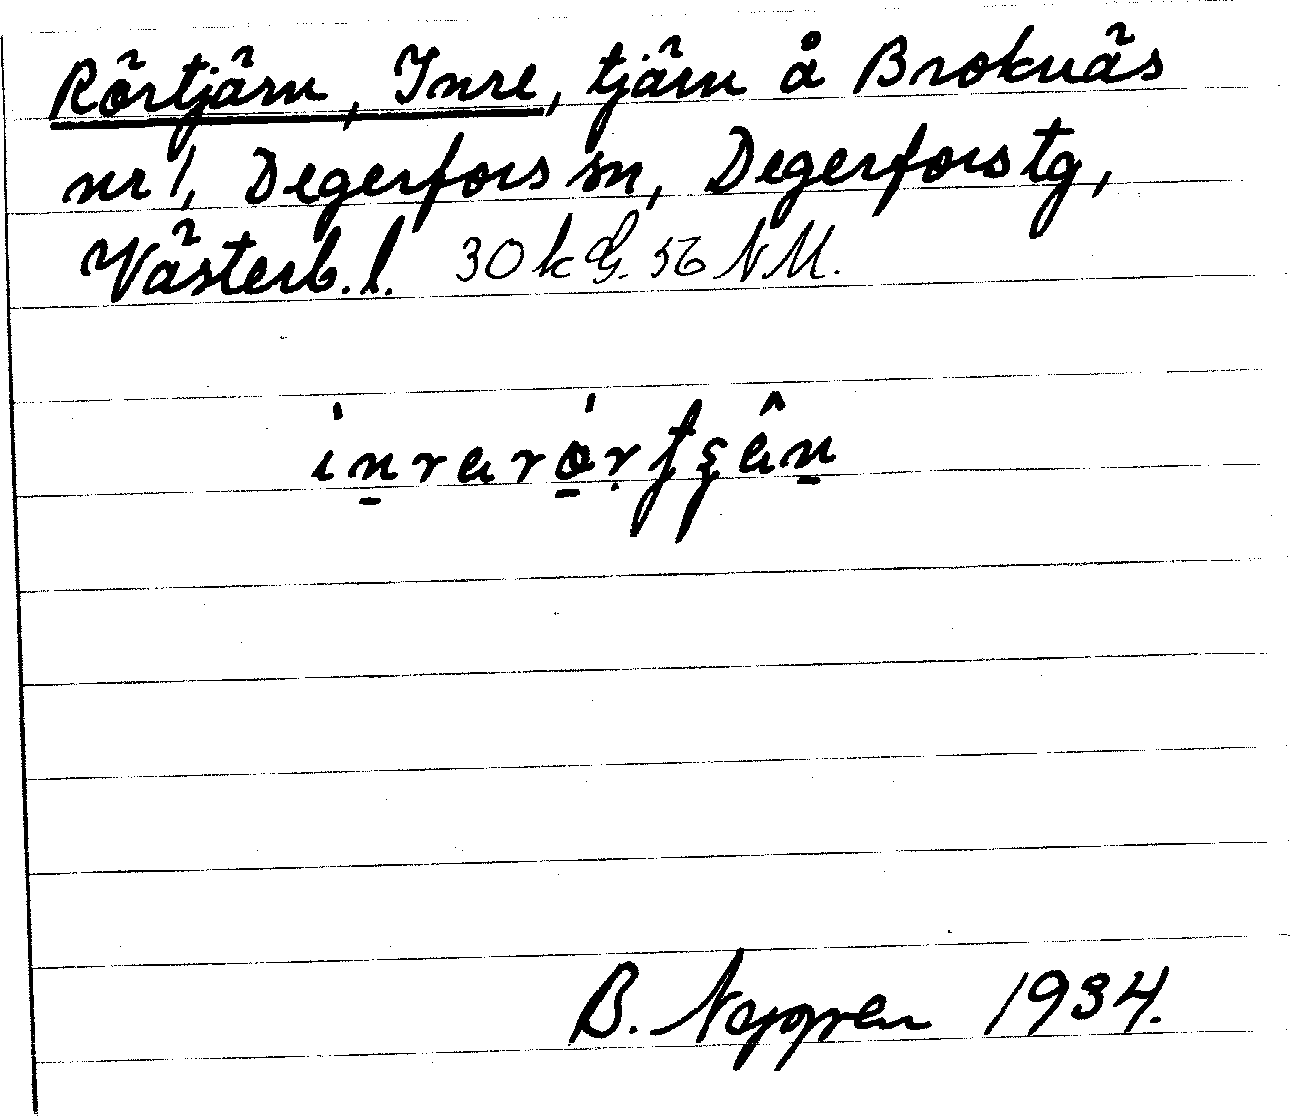 Rörtjärn, Inre, tjärn å Broknäs
nr 1, Degerfors sn, Degerfors tg,
Västerb. l. 30 k G. 56 NM.
B. Nygren 1934.